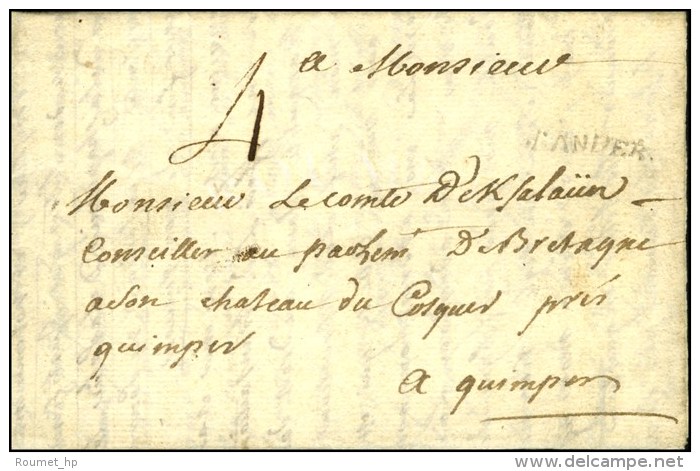 a Monsieur
4
LANDER.
Monsieur Le comte De Ksalaün
Conseiller au parlem^t De Bretagne
a son chateau du Cosquer prés
quimper
a quimper
Roumet_hp
delcampe.net